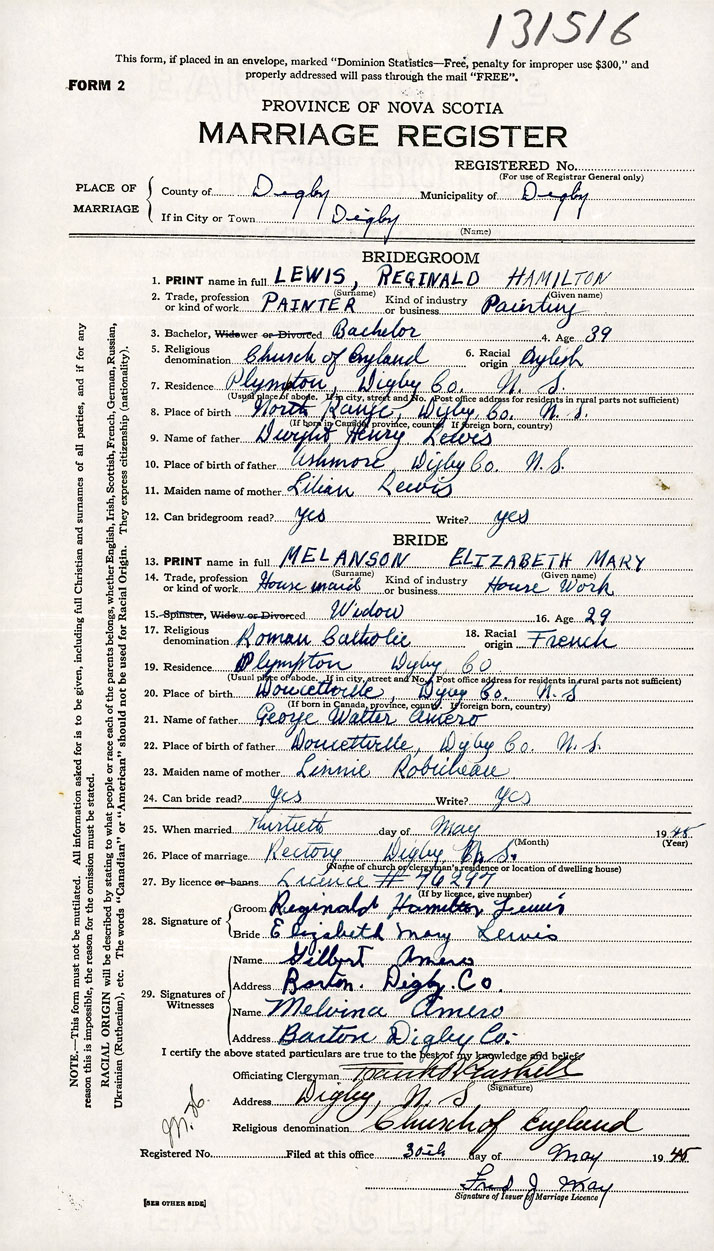 131516
This form, if placed in an envelope, marked "Dominion Statistics—Free, penalty for improper use $300," and
properly addressed will pass through the mail "FREE".
FORM 2
PROVINCE OF NOVA SCOTIA
MARRIAGE REGISTER
REGISTERED No.
(For use of Registrar General only)
PLACE OF MARRIAGE
County of Digby Municipality of Digby
If in City or Town Digby
(Name)
BRIDEGROOM
1. PRINT name in full LEWIS, REGINALD HAMILTON
(Surname) (Given name)
2. Trade, profession or kind of work PAINTER Kind of industry or business Painting
3. Bachelor, Widower or Divorced Bachelor 4. Age 39
5. Religious denomination Church of England 6. Racial origin English
7. Residence Plympton, Digby Co. N. S.
(Usual place of abode. If in city, street and No. Post office address for residents in rural parts not sufficient)
8. Place of birth North Range Digby Co. N. S.
(If born in Canada, province, county. If foreign born, country)
9. Name of father Dwight Henry Lewis
10. Place of birth of father Ashmore Digby Co. N. S.
11. Maiden name of mother Lilian Lewis
12. Can bridegroom read? yes Write? yes
BRIDE
13. PRINT name in full MELANSON ELIZABETH MARY
(Surname) (Given name)
14. Trade, profession or kind of work House maid Kind of industry or business House Work
15. Spinster, Widow or Divorced Widow 16. Age 29
17. Religious denomination Roman Catholic 18. Racial origin French
19. Residence Plympton Digby Co
(Usual place of abode. If in city, street and No. Post office address for residents in rural parts not sufficient)
20. Place of birth Doucetteville, Digby Co. N. S
(If born in Canada, province, county. If foreign born, country)
21. Name of father George Walter Amero
22. Place of birth of father Doucetteville, Digby Co. N. S.
23. Maiden name of mother Linnie Robicheau
24. Can bride read? Yes Write? Yes
25. When married Thirtieth day of May 1945
(Month) (Year)
26. Place of marriage Rectory Digby N. S.
(Name of church or clergyman's residence or location of dwelling house)
27. By licence or banns Licence # 76297
(If by licence, give number)
28. Signature of
Groom Reginald Hamilton Lewis
Bride Elizabeth Mary Lewis
29. Signatures of Witnesses
Name Gilbert Amero
Address Barton. Digby. Co.
Name Melvina Amero
Address Barton Digby Co.
I certify the above stated particulars are true to the best of my knowledge and belief.
Officiating Clergyman
(Signature)
Address Digby, N. S
Religious denomination Church of England
Registered No. Filed at this office 30th day of May 1945
Fred J May
Signature of Issuer of Marriage Licence
[SEE OTHER SIDE]
NOTE.—This form must not be mutilated. All information asked for is to be given, including full Christian and surnames of all parties, and if for any
reason this is impossible, the reason for the omission must be stated.
RACIAL ORIGIN will be described by stating to what people or race each of the parents belongs, whether English, Irish, Scottish, French, German, Russian,
Ukrainian (Ruthenian), etc. The words "Canadian" or "American" should not be used for Racial Origin. They express citizenship (nationality).